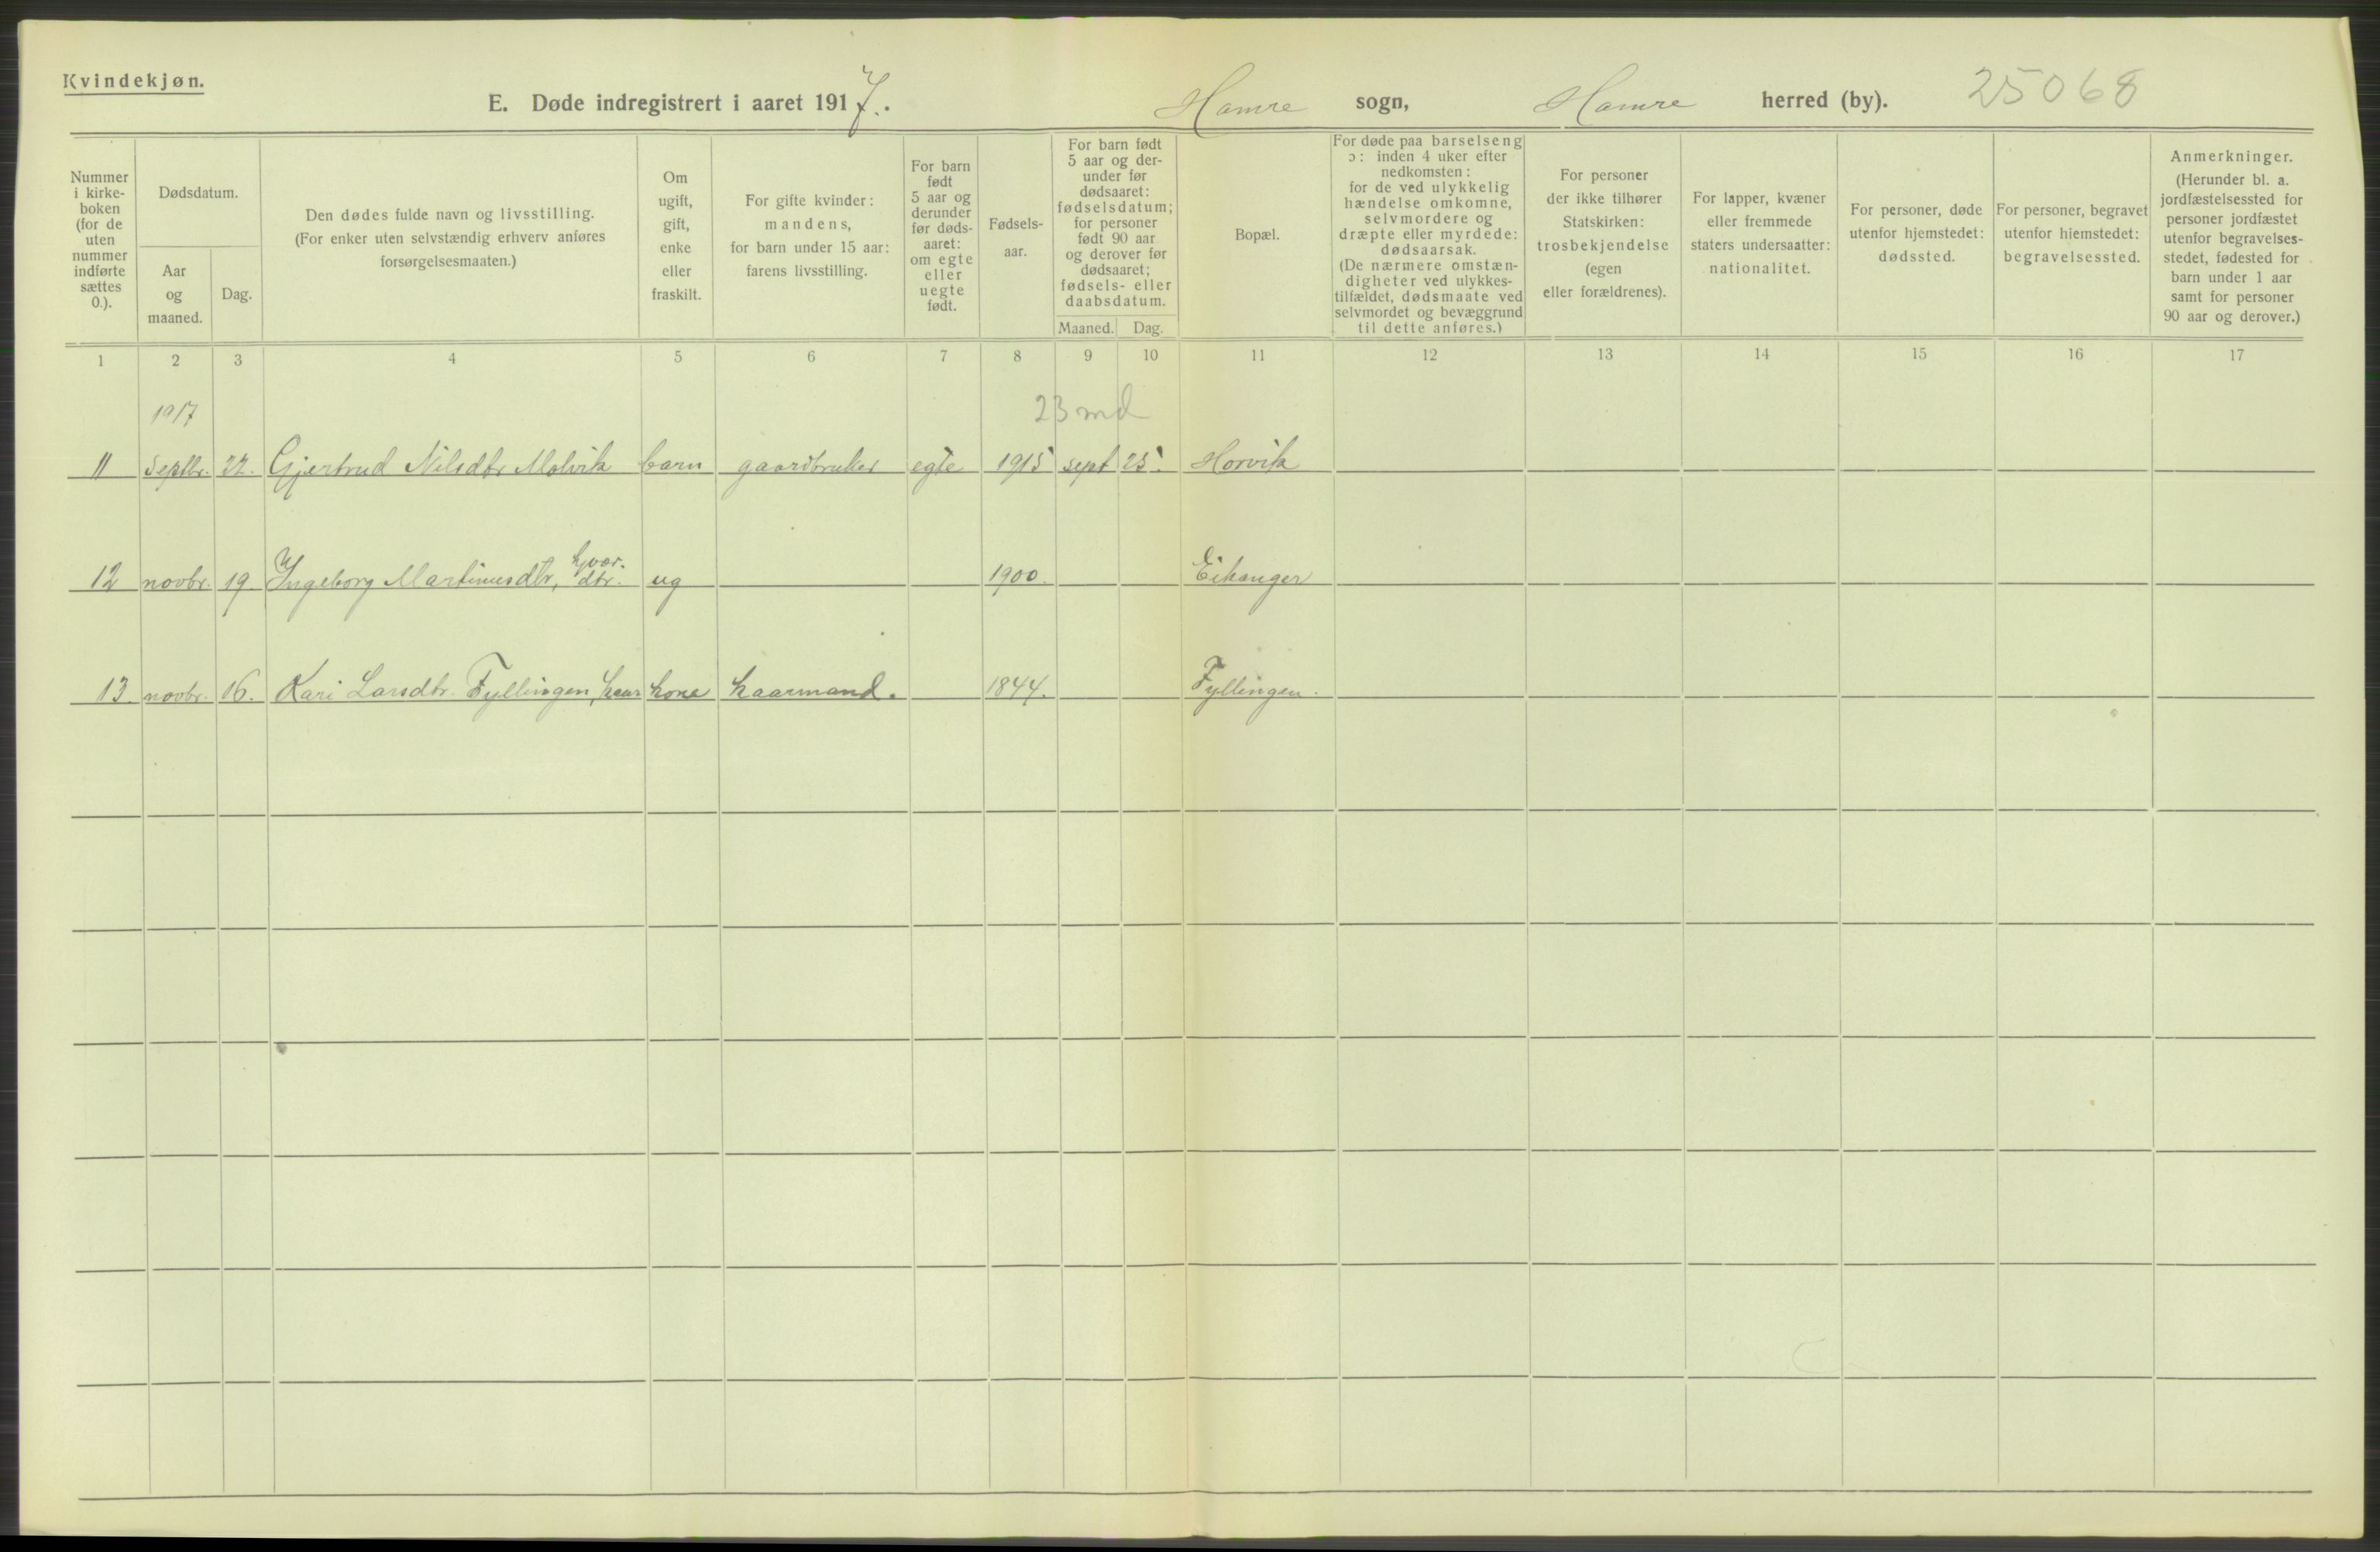 Kvindekjøn.
E. Døde indregistrert i aaret 1917. Hamre sogn, Hamre herred (by). 25068
Nummer
i kirke-
boken
(for de
uten
nummer
indførte
sættes
0.).
Dødsdatum.
Aar
og
maaned.
Dag.
Den dødes fulde navn og livsstilling.
(For enker uten selvstændig erhverv anføres
forsørgelsesmaaten.)
Om
ugift,
gift,
enke
eller
fraskilt.
For gifte kvinder:
mandens,
for barn under 15 aar:
farens livsstilling.
For barn
født
5 aar og
derunder
før døds-
aaret:
om egte
eller
uegte
født.
Fødsels-
aar.
For barn født
5 aar og der-
under før
dødsaaret:
fødselsdatum;
for personer
født 90 aar
og derover før
dødsaaret;
fødsels- eller
daabsdatum.
Maaned. Dag.
Bopæl.
For døde paa barselseng
ɔ: inden 4 uker efter
nedkomsten:
for de ved ulykkelig
hændelse omkomne,
selvmordere og
dræpte eller myrdede:
dødsaarsak.
(De nærmere omstæn-
digheter ved ulykkes-
tilfældet, dødsmaate ved
selvmordet og bevæggrund
til dette anføres.)
For personer
der ikke tilhører
Statskirken:
trosbekjendelse
(egen
eller forældrenes).
For lapper, kvæner
eller fremmede
staters undersaatter:
nationalitet.
For personer, døde
utenfor hjemstedet:
dødssted.
For personer, begravet
utenfor hiemstedet:
begravelsessted.
Anmerkninger.
(Herunder bl. a.
jordfæstelsessted for
personer jordfæstet
utenfor begravelses-
stedet, fødested for
barn under 1 aar
samt for personer
90 aar og derover.)
1 2 3 4 5 6 7 8 9 10 11 12 13 14 15 16 17
1917 23 md
11 Septbr. 22. Gjertrud Nilsdtr Molvik barn gaardbruker egte 1915 sept 25. Horvik
12 novbr. 19. Ingeborg Martinusdtr, dtr. ug 1900. Eikanger
13. novbr. 16. Kari Larsdtr. Fyllingen, kaar kone kaarmand. 1844. Fyllingen.